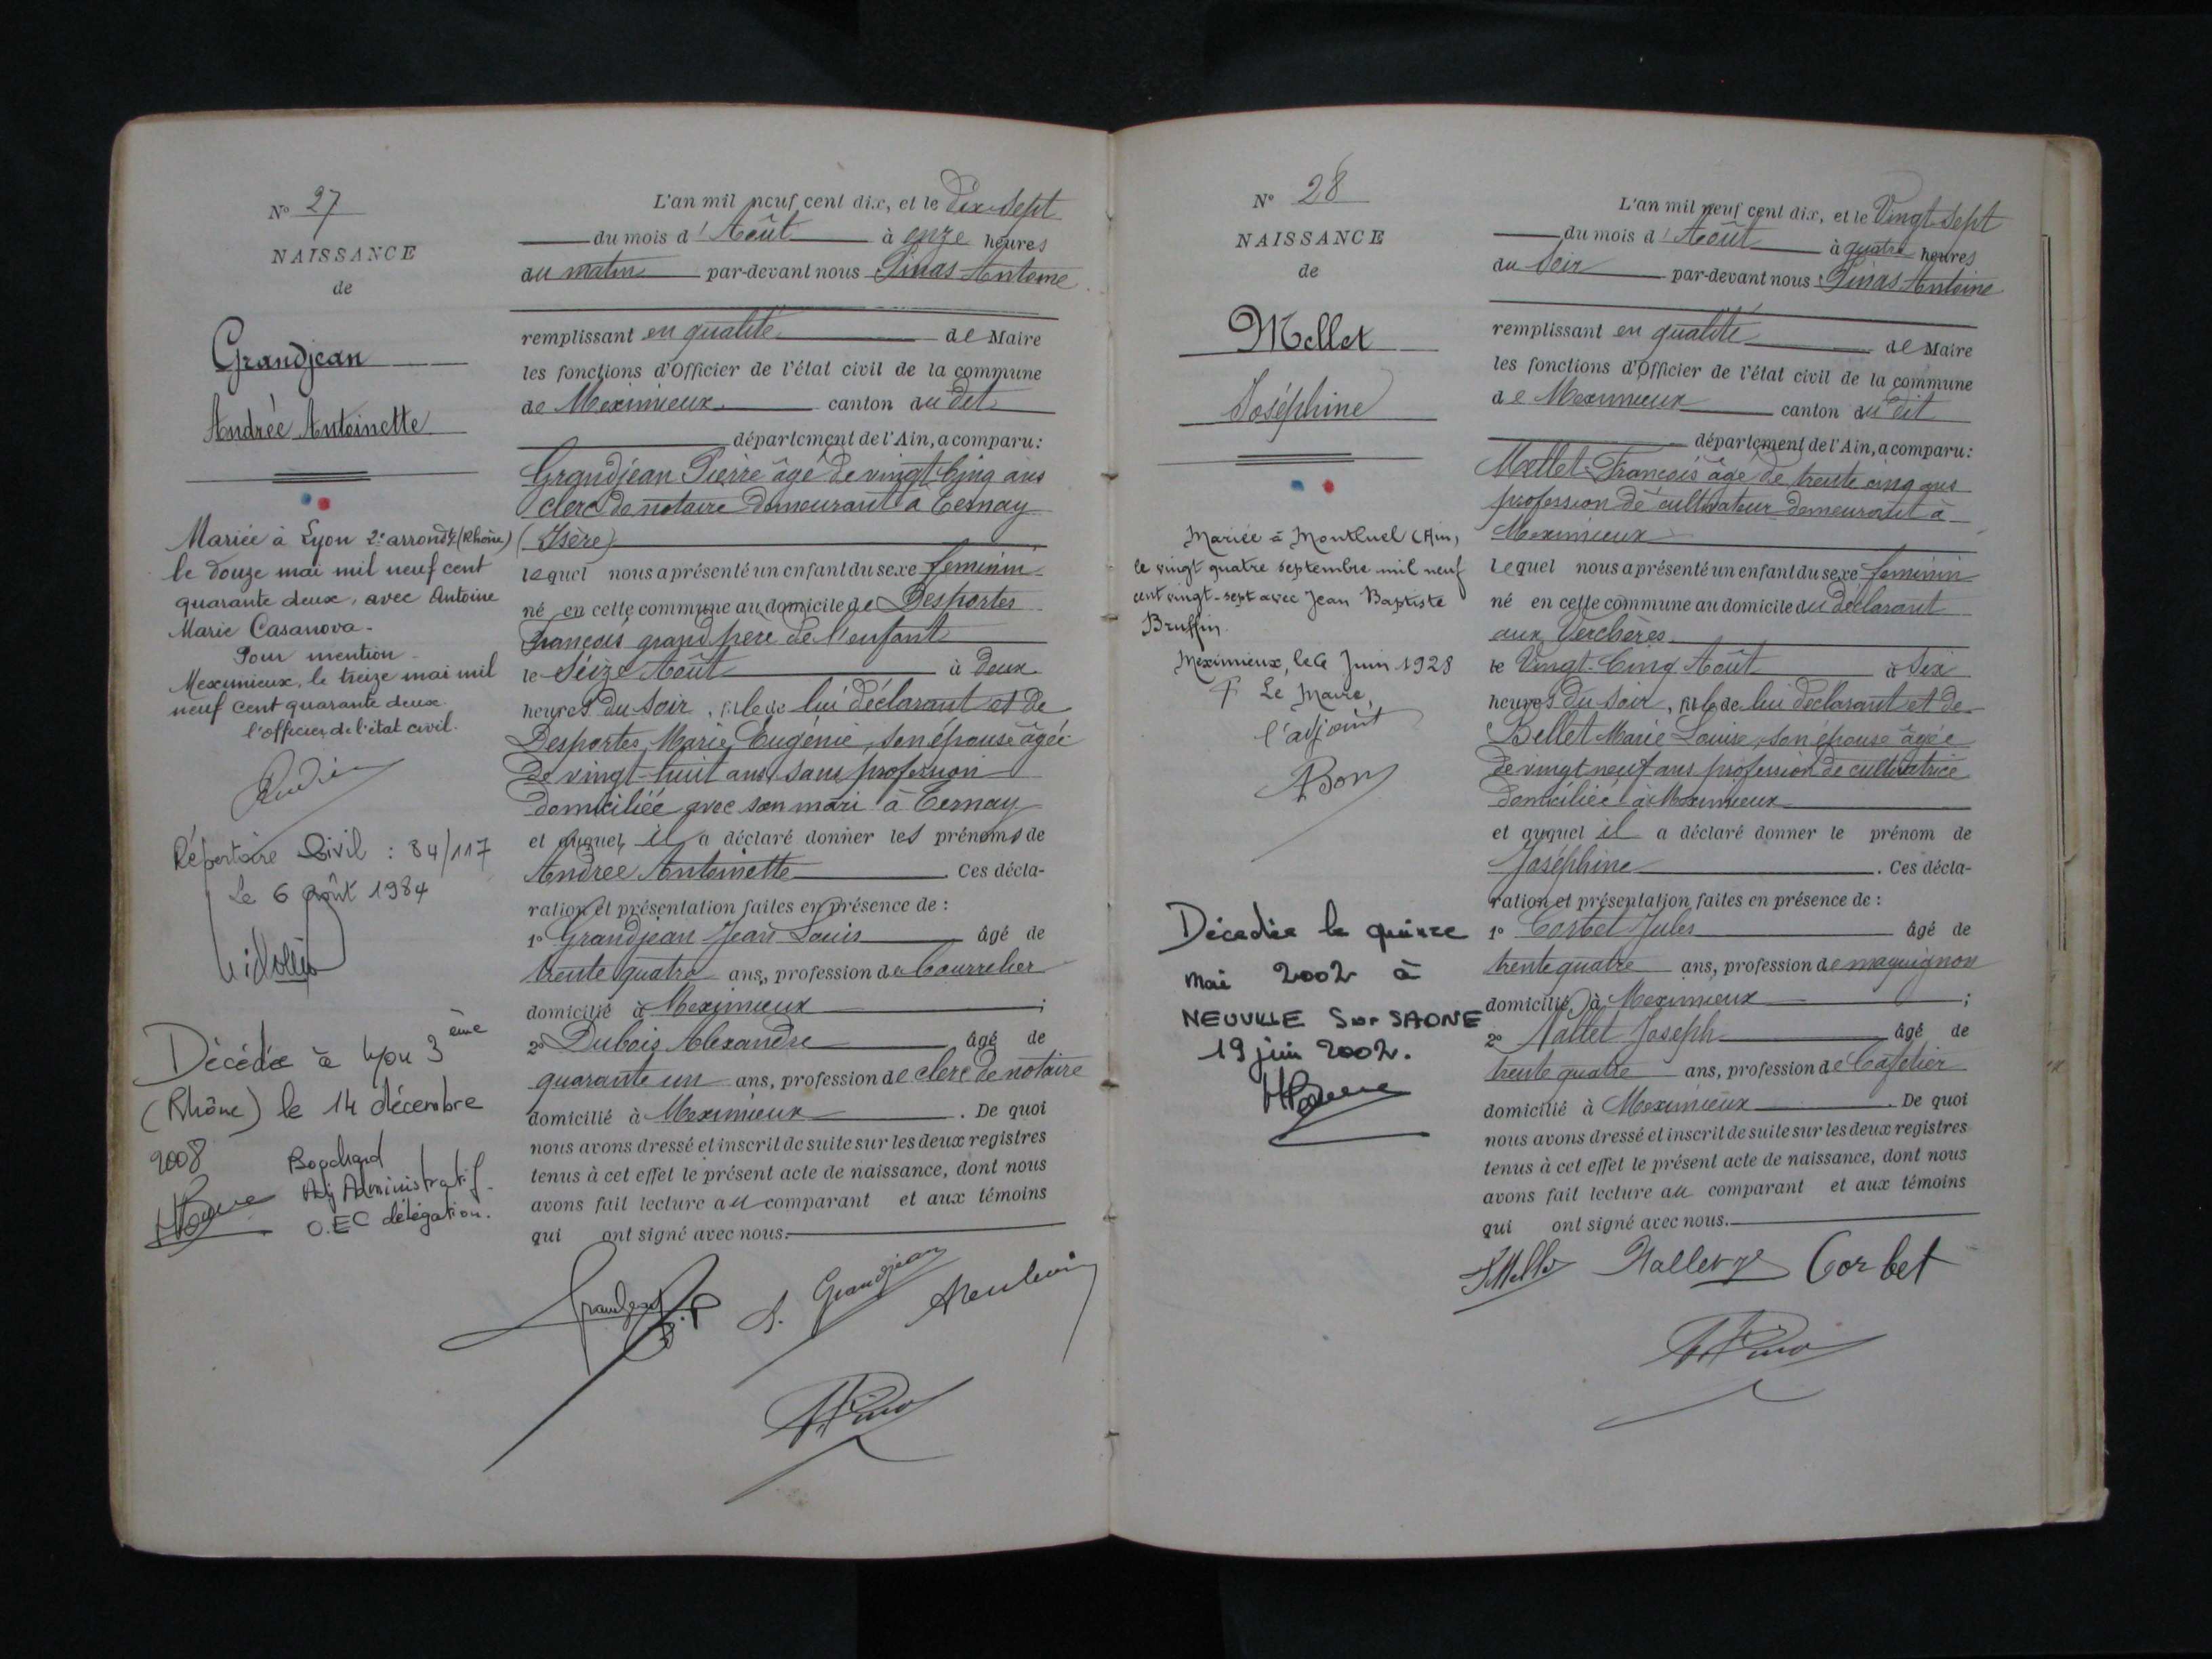 N° 27
NAISSANCE
de
Grandjean
Andrée Antoinette
Mariée à Lyon 2e arrondt (Rhône)
le douze mai mil neuf cent
quarante deux, avec Antoine
Marie Casanova.
Pour mention
Meximieux, le treize mai mil
neuf cent quarante deux
l'officier de l'état civil.
Répertoire Civil : 84/117
Le 6 août 1984
Décédée à Lyon 3ème
(Rhône) le 14 décembre
2008
Adj Administratif.
O.EC délégation.
L'an mil neuf cent dix, et le dix-sept
du mois d'Août à onze heures
du matin par-devant nous Pinas Antoine
remplissant en qualité de Maire
les fonctions d'Officier de l'état civil de la commune
de Meximieux canton du dit
département de l'Ain, a comparu :
Grandjean Pierre âgé de vingt cinq ans
clerc de notaire demeurant à Ternay
(Isère)
lequel nous a présenté un enfant du sexe féminin
né en cette commune au domicile de Desportes
François grand père de l'enfant
le Seize Août à deux
heures du soir, fille de lui déclarant et de
Desportes Marie Eugénie, son épouse âgée
de vingt-huit ans, sans profession
domiciliée avec son mari à Ternay
et auquel il a déclaré donner les prénoms de
Andrée Antoinette. Ces décla-
ration et présentation faites en présence de :
1° Grandjean Jean Louis âgé de
trente quatre ans, profession de Bourrelier
domicilié à Meximieux ;
2° Dubois Alexandre âgé de
quarante un ans, profession de clerc de notaire
domicilié à Meximieux. De quoi
nous avons dressé et inscrit de suite sur les deux registres
tenus à cet effet le présent acte de naissance, dont nous
avons fait lecture au comparant et aux témoins
qui ont signé avec nous.
Grandjean
N° 28
NAISSANCE
de
Mellet
Joséphine
Mariée à Montluel (Ain)
le vingt quatre septembre mil neuf
cent vingt-sept avec Jean Baptiste
Bruffin.
Meximieux, le 6 Juin 1928
P. Le Maire,
l'adjoint
Bon
Décédée le quinze
mai 2002 à
NEUVILLE Sur SAONE
19 juin 2002.
L'an mil neuf cent dix, et le Vingt-sept
du mois d'Août à quatre heures
du soir par-devant nous Pinas Antoine
remplissant en qualité de Maire
les fonctions d'Officier de l'état civil de la commune
de Meximieux canton du dit
département de l'Ain, a comparu :
Mellet François âgé de trente cinq ans
profession de cultivateur demeurant à
Meximieux
lequel nous a présenté un enfant du sexe féminin
né en cette commune au domicile du déclarant
aux Verchères
le Vingt-Cinq Août à Six
heures du soir, fille de lui déclarant et de
Bellet Marie Louise, son épouse âgée
de vingt neuf ans profession de cultivatrice
domiciliée à Meximieux
et auquel il a déclaré donner le prénom de
Joséphine. Ces décla-
ration et présentation faites en présence de :
1° Corbet Jules âgé de
trente quatre ans, profession de maquignon
domicilié à Meximieux ;
2° Nallet Joseph âgé de
trente quatre ans, profession de Cafetier
domicilié à Meximieux. De quoi
nous avons dressé et inscrit de suite sur les deux registres
tenus à cet effet le présent acte de naissance, dont nous
avons fait lecture au comparant et aux témoins
qui ont signé avec nous.
Corbet